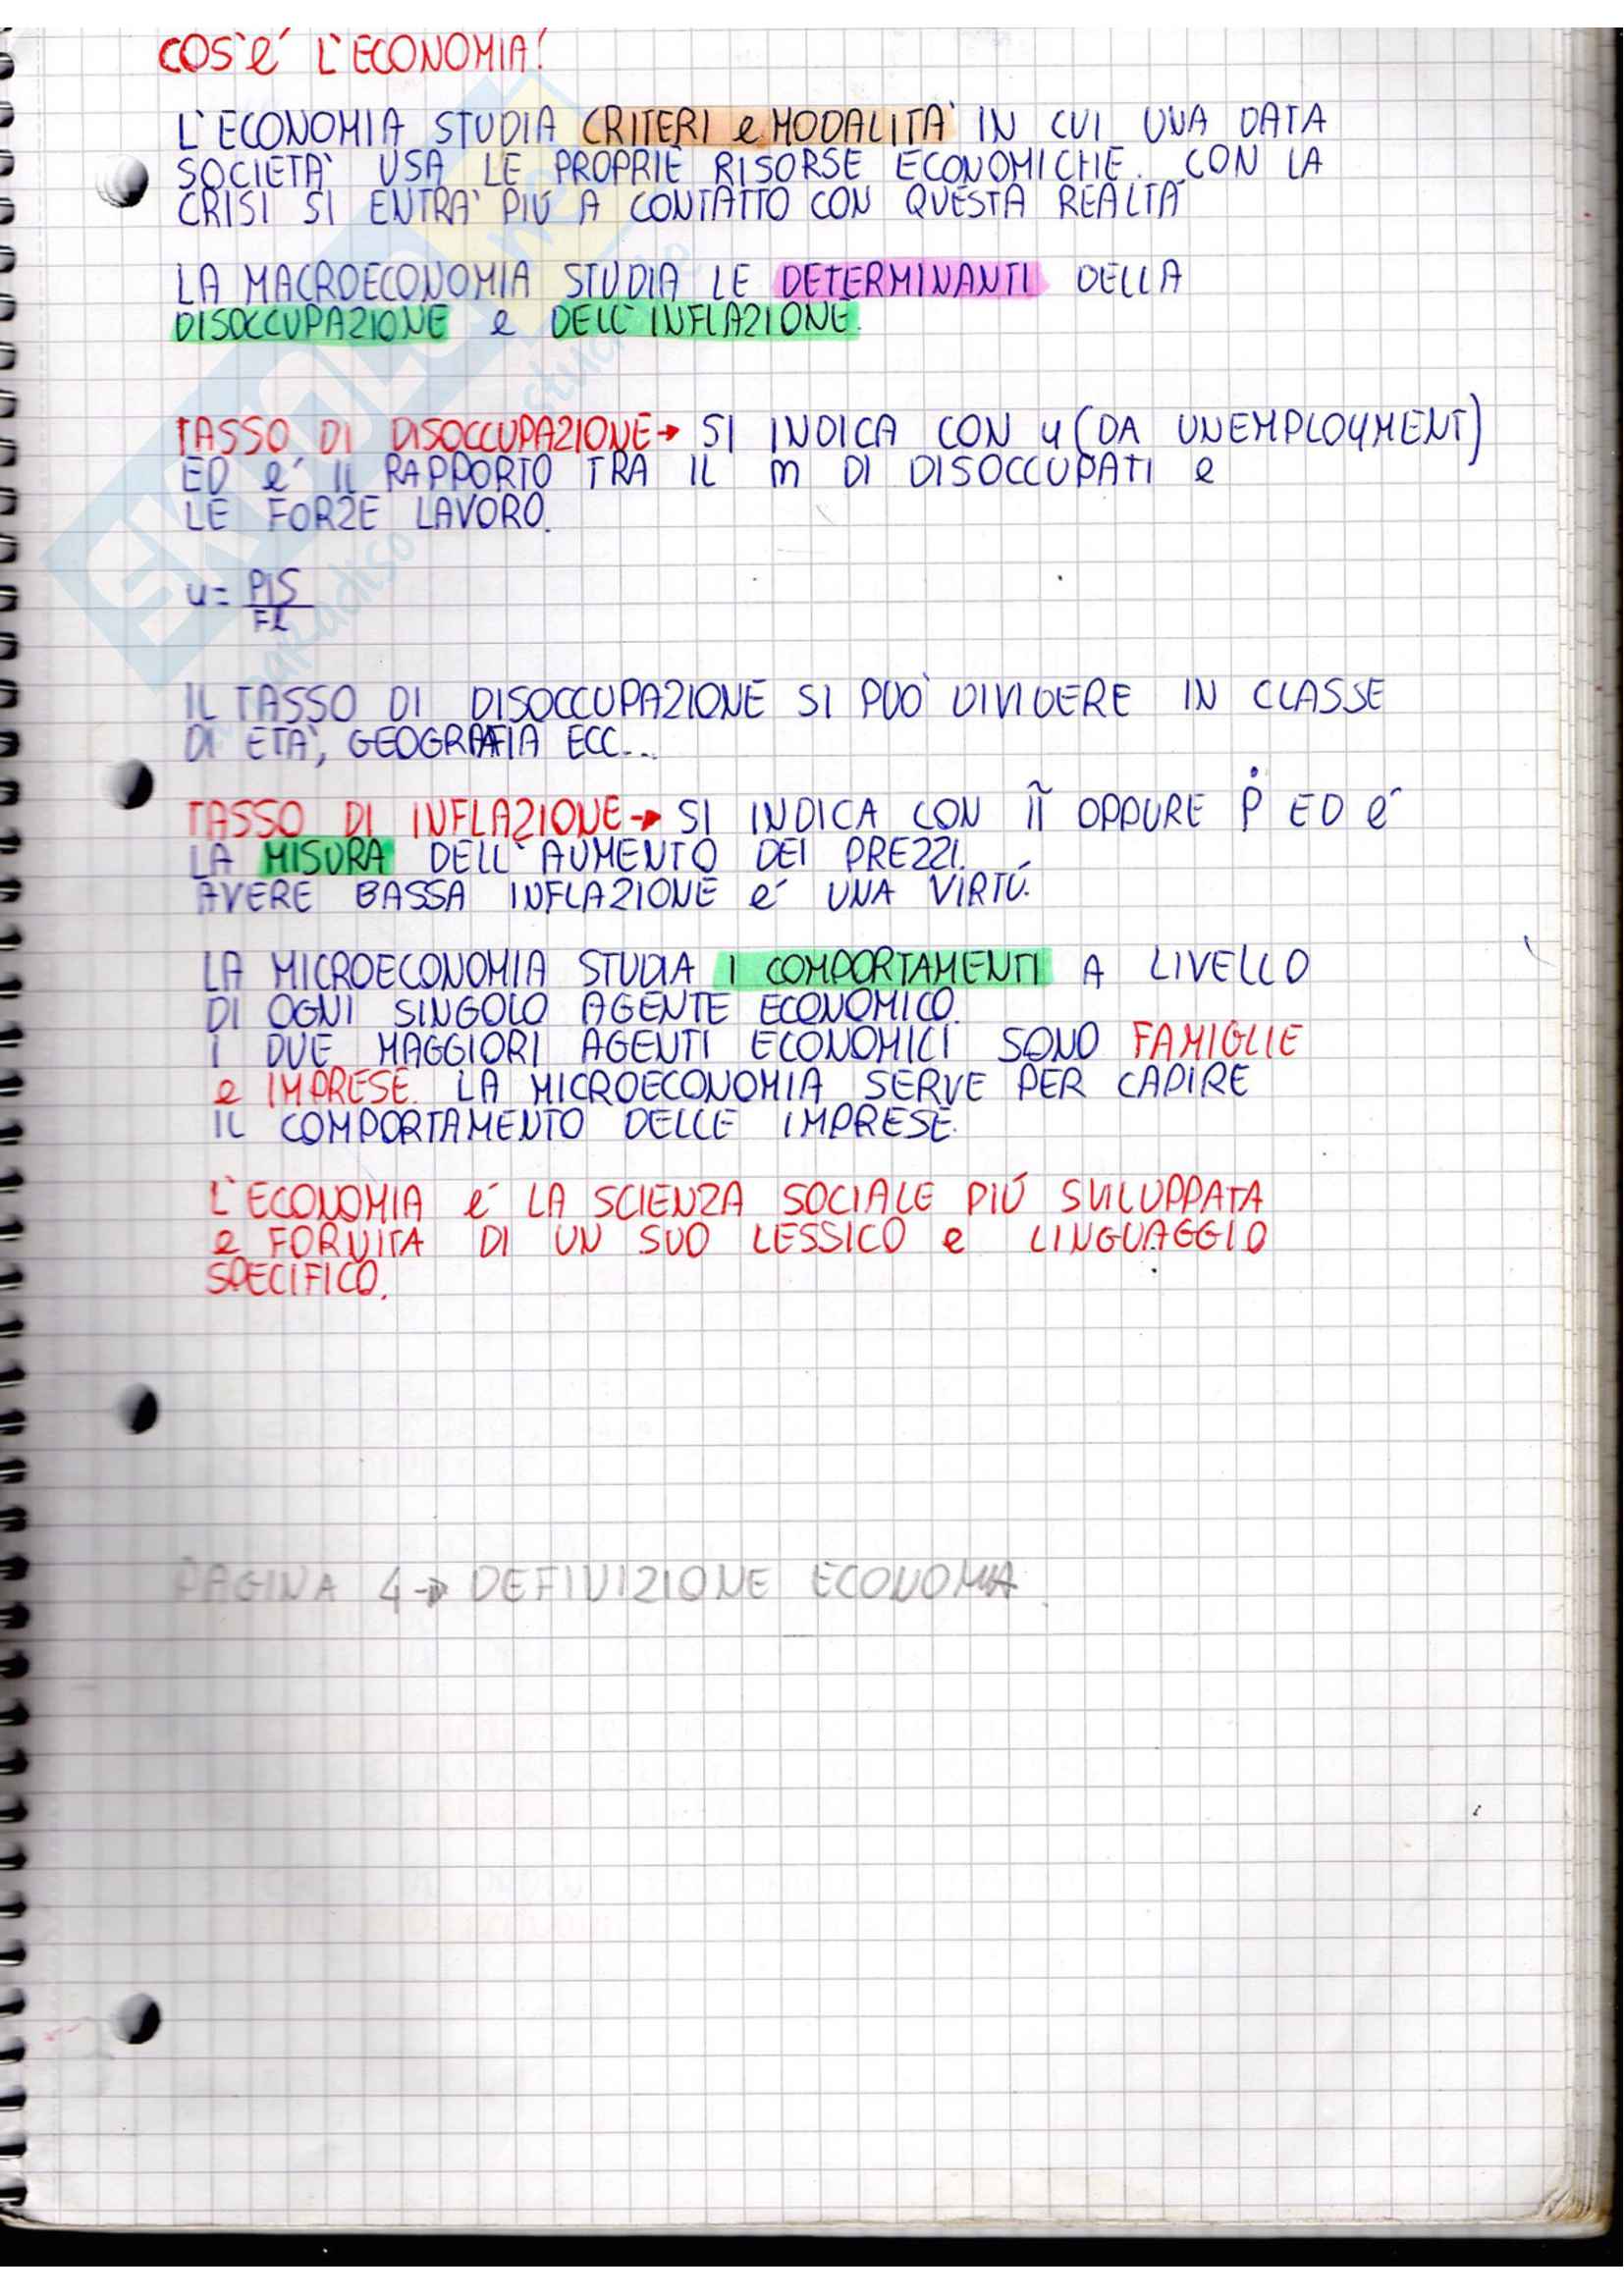 COS'è L'ECONOMIA?
L'ECONOMIA STUDIA CRITERI e MODALITA' IN CUI UNA DATA
SOCIETA' USA LE PROPRIE RISORSE ECONOMICHE. CON LA
CRISI SI ENTRA' PIÚ A CONTATTO CON QUESTA REALTA'
LA MACROECONOMIA STUDIA LE DETERMINANTI DELLA
DISOCCUPAZIONE e DELL'INFLAZIONE.
TASSO DI DISOCCUPAZIONE → SI INDICA CON u (DA UNEMPLOYMENT)
ED é IL RAPPORTO TRA IL n DI DISOCCUPATI e
LE FORZE LAVORO.
u =
FL
IL TASSO DI DISOCCUPAZIONE SI PUO' DIVIDERE IN CLASSE
DI ETA', GEOGRAFIA ECC...
TASSO DI INFLAZIONE → SI INDICA CON π OPPURE Ṗ ED é
LA MISURA DELL'AUMENTO DEI PREZZI.
AVERE BASSA INFLAZIONE é UNA VIRTÚ.
LA MICROECONOMIA STUDIA I COMPORTAMENTI A LIVELLO
DI OGNI SINGOLO AGENTE ECONOMICO.
I DUE MAGGIORI AGENTI ECONOMICI SONO FAMIGLIE
e IMPRESE. LA MICROECONOMIA SERVE PER CAPIRE
IL COMPORTAMENTO DELLE IMPRESE.
L'ECONOMIA é LA SCIENZA SOCIALE PIÚ SVILUPPATA
e FORNITA DI UN SUO LESSICO e LINGUAGGIO
SPECIFICO.
PAGINA 4 → DEFINIZIONE ECONOMIA